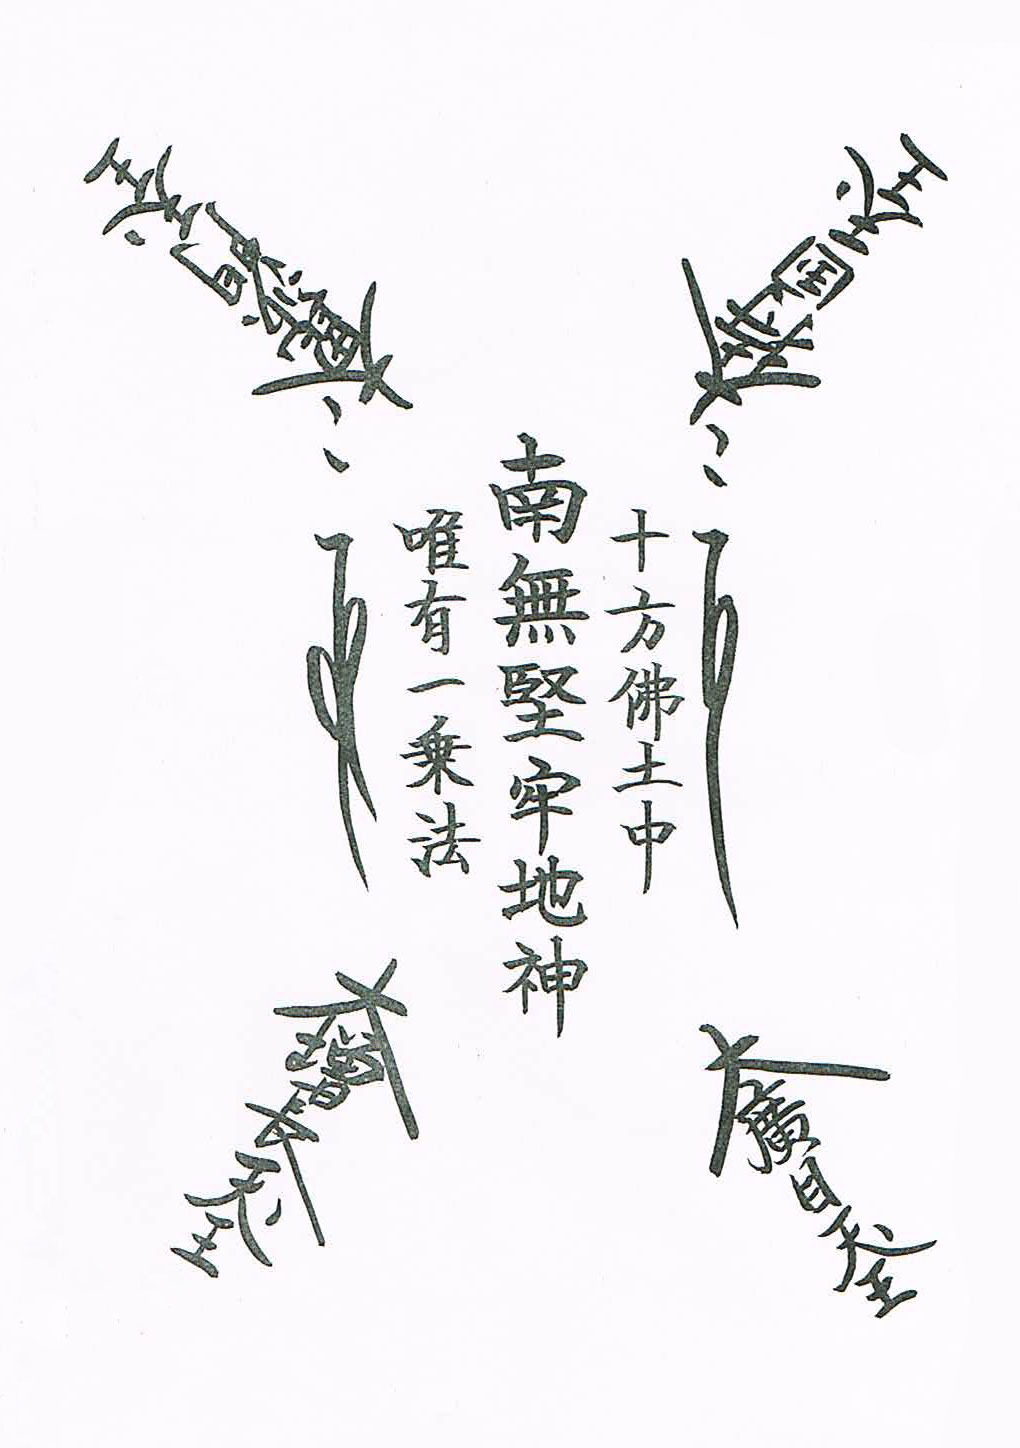 大持国天王
大毘沙門天王
十方佛土中
南無堅牢地神
唯有一乗法
大廣目天王
大増長天王